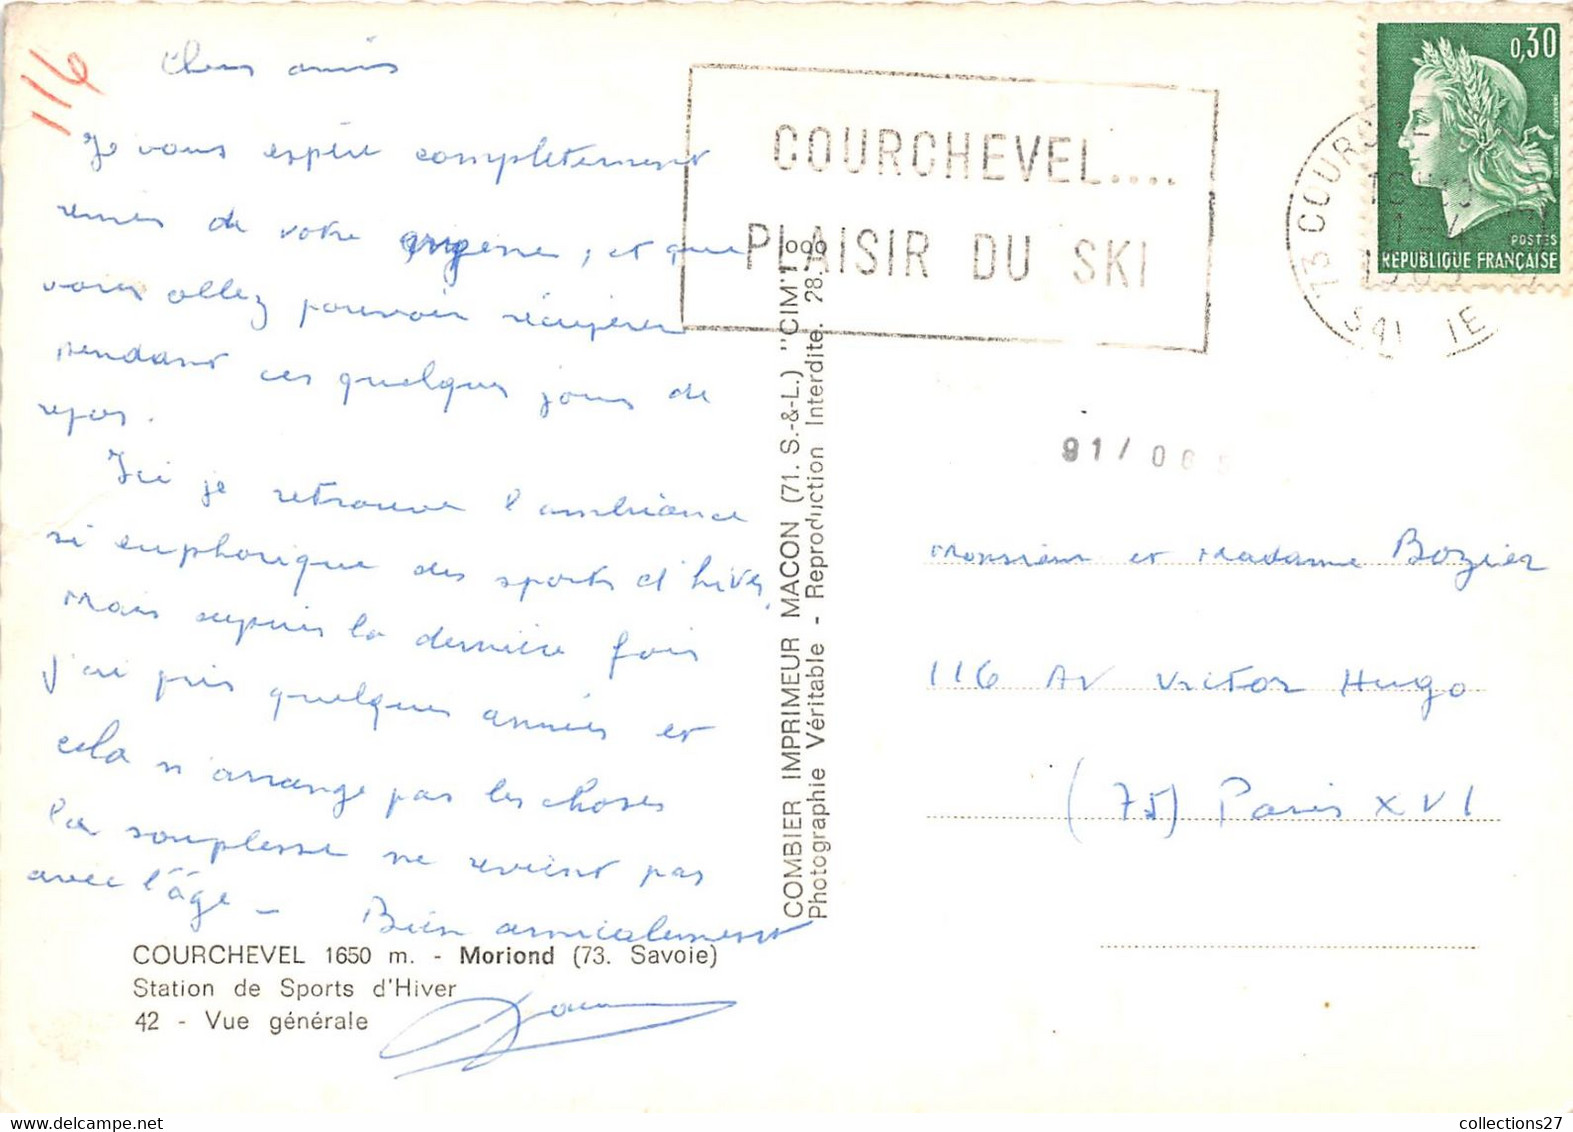 116
Chers amis
Je vous espère complètement
remis de votre angine, et que
vous allez pouvoir récupérer
pendant ces quelques jours de
repos.
Ici je retrouve l'ambiance
si euphorique des sports d'hiver,
mais depuis la dernière fois
j'ai pris quelques années et
cela n'arrange pas les choses
la souplesse ne revient pas
avec l'âge - Bien amicalement
COURCHEVEL 1650 m. - Moriond (73. Savoie)
Station de Sports d'Hiver
42 - Vue générale
COMBIER IMPRIMEUR MACON (71. S.-&-L.) "CIM"
Photographie Véritable - Reproduction Interdite.
COURCHEVEL....
PLAISIR DU SKI
0,30
POSTES
REPUBLIQUE FRANÇAISE
73
91/
Monsieur et Madame Bozier
116 Av Victor Hugo
(75) Paris XVI
collections27